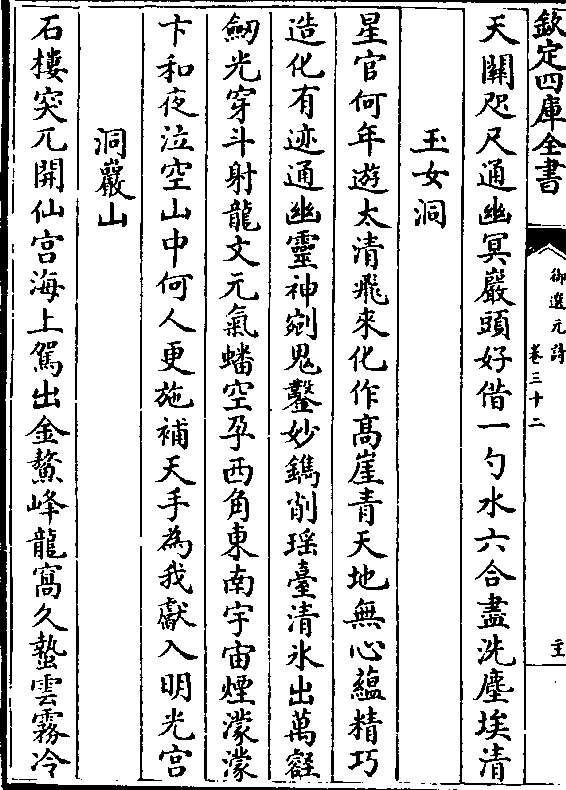 欽定四庫全書
御選元詩
卷三十二
主
天關咫尺通幽冥巖頭好借一勺水六合盡洗塵埃清
玉女洞
星官何年遊太清飛來化作髙崖青天地無心蘊精巧
造化有迹通幽靈神剜鬼鑿妙鐫削瑶臺清氷出萬壑
劒光穿斗射龍文元氣蟠空孕西角東南宇宙煙濛濛
卞和夜泣空山中何人更施補天手為我獻入明光宫
洞巖山
石樓突兀開仙宫海上駕出金鰲峰龍窩久蟄雲霧冷